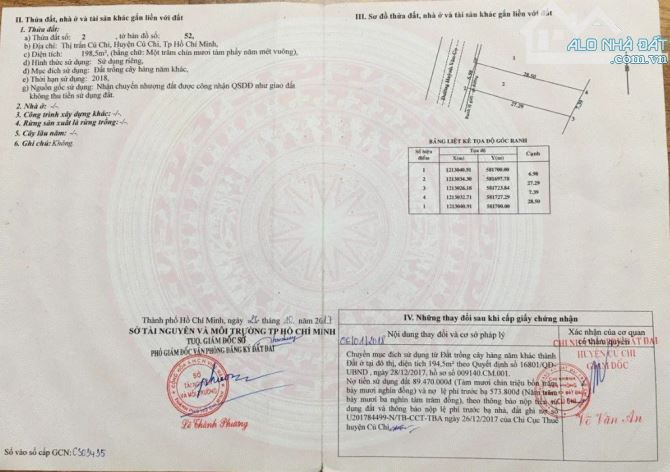 II. Thửa đất, nhà ở và tài sản khác gắn liền với đất
1. Thửa đất:
a) Thửa đất số: 2 , tờ bản đồ số: 52,
b) Địa chỉ: Thị trấn Củ Chi, Huyện Củ Chi, Tp Hồ Chí Minh,
c) Diện tích: 198,5m², (bằng chữ: Một trăm chín mươi tám phẩy năm mét vuông),
d) Hình thức sử dụng: Sử dụng riêng,
đ) Mục đích sử dụng: Đất trồng cây hàng năm khác,
e) Thời hạn sử dụng: 2018,
g) Nguồn gốc sử dụng: Nhận chuyển nhượng đất được công nhận QSDĐ như giao đất
không thu tiền sử dụng đất.
2. Nhà ở: -/-.
3. Công trình xây dựng khác: -/-.
4. Rừng sản xuất là rừng trồng: -/-.
5. Cây lâu năm: -/-.
6. Ghi chú: Không.
Thành phố Hồ Chí Minh, ngày 26 tháng 10 năm 2017
SỞ TÀI NGUYÊN VÀ MÔI TRƯỜNG TP HỒ CHÍ MINH
TUQ. GIÁM ĐỐC SỞ
PHÓ GIÁM ĐỐC VĂN PHÒNG ĐĂNG KÝ ĐẤT ĐAI
SỞ
TÀI NGUYÊN
VÀ MÔI TRƯỜNG
Lê Thành Phương
Số vào sổ cấp GCN: CS09435
III. Sơ đồ thửa đất, nhà ở và tài sản khác gắn liền với đất
ALO NHÀ ĐẤT
.com.vn
1
28.50
4
6.98
2
7.39
27.29
3
BẢNG LIỆT KÊ TỌA ĐỘ GÓC RANH
Số hiệu điểm Tọa độ Cạnh
X(m) Y(m)
1 1213040.91 581700.00
6.98
2 1213034.30 581697.78
27.29
3 1213026.18 581723.84
7.39
4 1213032.71 581727.29
28.50
1 1213040.91 581700.00
IV. Những thay đổi sau khi cấp giấy chứng nhận
Nội dung thay đổi và cơ sở pháp lý
Xác nhận của cơ quan
có thẩm quyền
Chuyển mục đích sử dụng từ Đất trồng cây hàng năm khác thành
Đất ở tại đô thị, diện tích 194,5m² theo Quyết định số 16801/QĐ-
UBND , ngày 28/12/2017, hồ sơ số 009140.CM.001.
Nợ tiền sử dụng đất 89.470.000đ (Tám mươi chín triệu bốn trăm
bảy mươi nghìn đồng) và lệ phí trước bạ 573.800đ (Năm trăm
bảy mươi ba nghìn tám trăm đồng), theo thông báo nộp tiền sử
dụng đất và thông báo nộp lệ phí trước bạ nhà, đất ghi nợ số
U201784499-N/TB-CCT-TBA ngày 26/12/2017 của Chi Cục Thuế
huyện Củ Chi,
HUYỆN CỦ CHI
GIÁM ĐỐC
Võ Văn An